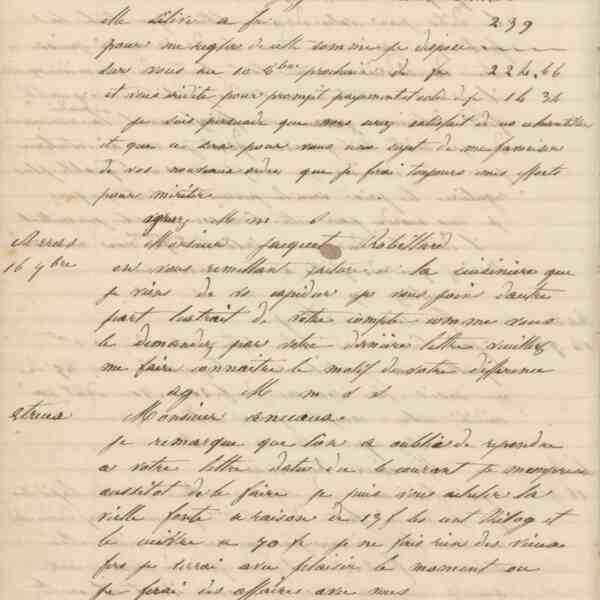 s'élève à fr 239
pour me regler de cette somme je dispose
sur vous au 10 8bre prochain de fr 224.66
et vous crédite pour prompt payement et solde de f 14 34
je suis persuadé que vous serez satisfait de
et que ce sera pour vous une sujet de me favoriser
de vos nouveaux ordre que je frai toujours mes efforts
pour mériter
agreez M m s
Arras Monsieur Jacquet Robillard
16 7bre en vous remettant facture de la cuisinière que
je viens de vs expedier je vous joins dautre
part lextrait de votre compte comme vous
le demandez par votre dernière lettre veuillez
me faire connaitre le motif de votre difference
ag. M m d s
Monsieur
je remarque que lon a oublié de repondre
a votre lettre datée du 6 courant je mempresse
aussitot de le faire je puis vous acheter la
vielle fonte a raison de 13f les cent kilog et
le cuivre a 70 fr je ne fais rien des vieux
fers je verrai avec plaisir le moment ou
je ferai des affaires avec vous